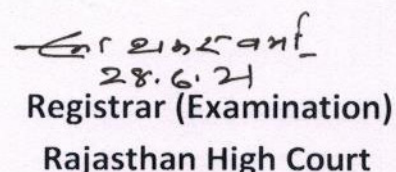 28.6.21
Registrar (Examination)
Rajasthan High Court